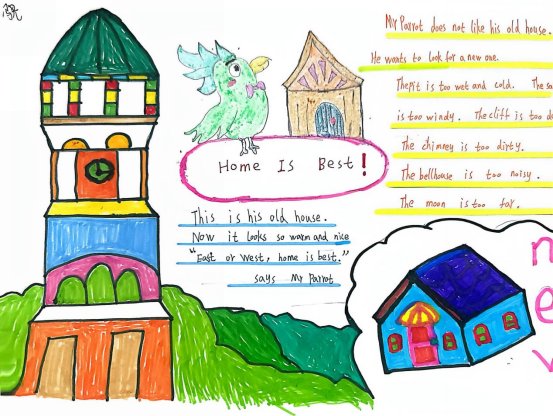 Mr Parrot does not like his old house.
He wants to look for a new one.
The pit is too wet and cold. The
is too windy. The cliff is too
The chimney is too dirty.
The bellhouse is too noisy.
The moon is too far.
Home Is Best!
This is his old house.
Now it looks so warm and nice
"East or west, home is best."
says Mr Parrot
n
e
w